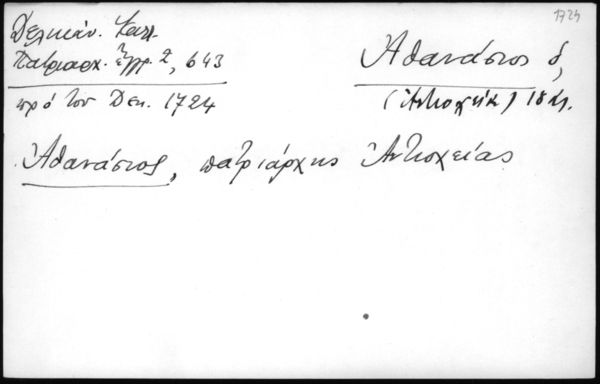 1724
Δελικάν. Καλ.
Πατριαρχ. ἔγγρ. 2, 643
πρό του Δεκ. 1724
Ἀθανάσιος δ,
(Ἀντιοχείας) 18
Ἀθανάσιος, πατριάρχης Ἀντιοχείας